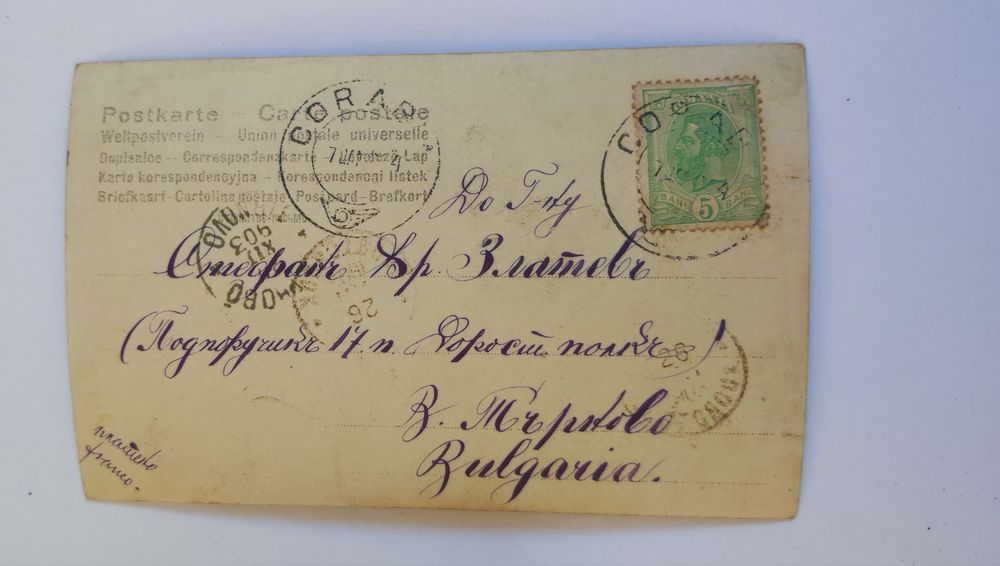 Postkarte – Carte postale
Weltpostverein – Union postale universelle
Dopisnice – Correspondenzkarte – Levelező-Lap
Karta korespondencyjna – Korespondenčni listek
Briefkaart – Cartolina postale – Postcard – Brefkort
CORAB
CORAB
BANI 5 BANI
До Г-ну
Стефанъ Хр. Златевъ
(Подпоручикъ 17. п. Доростл. полкъ)
В. Търново
Bulgaria.
платено
franco.
903
XII
26